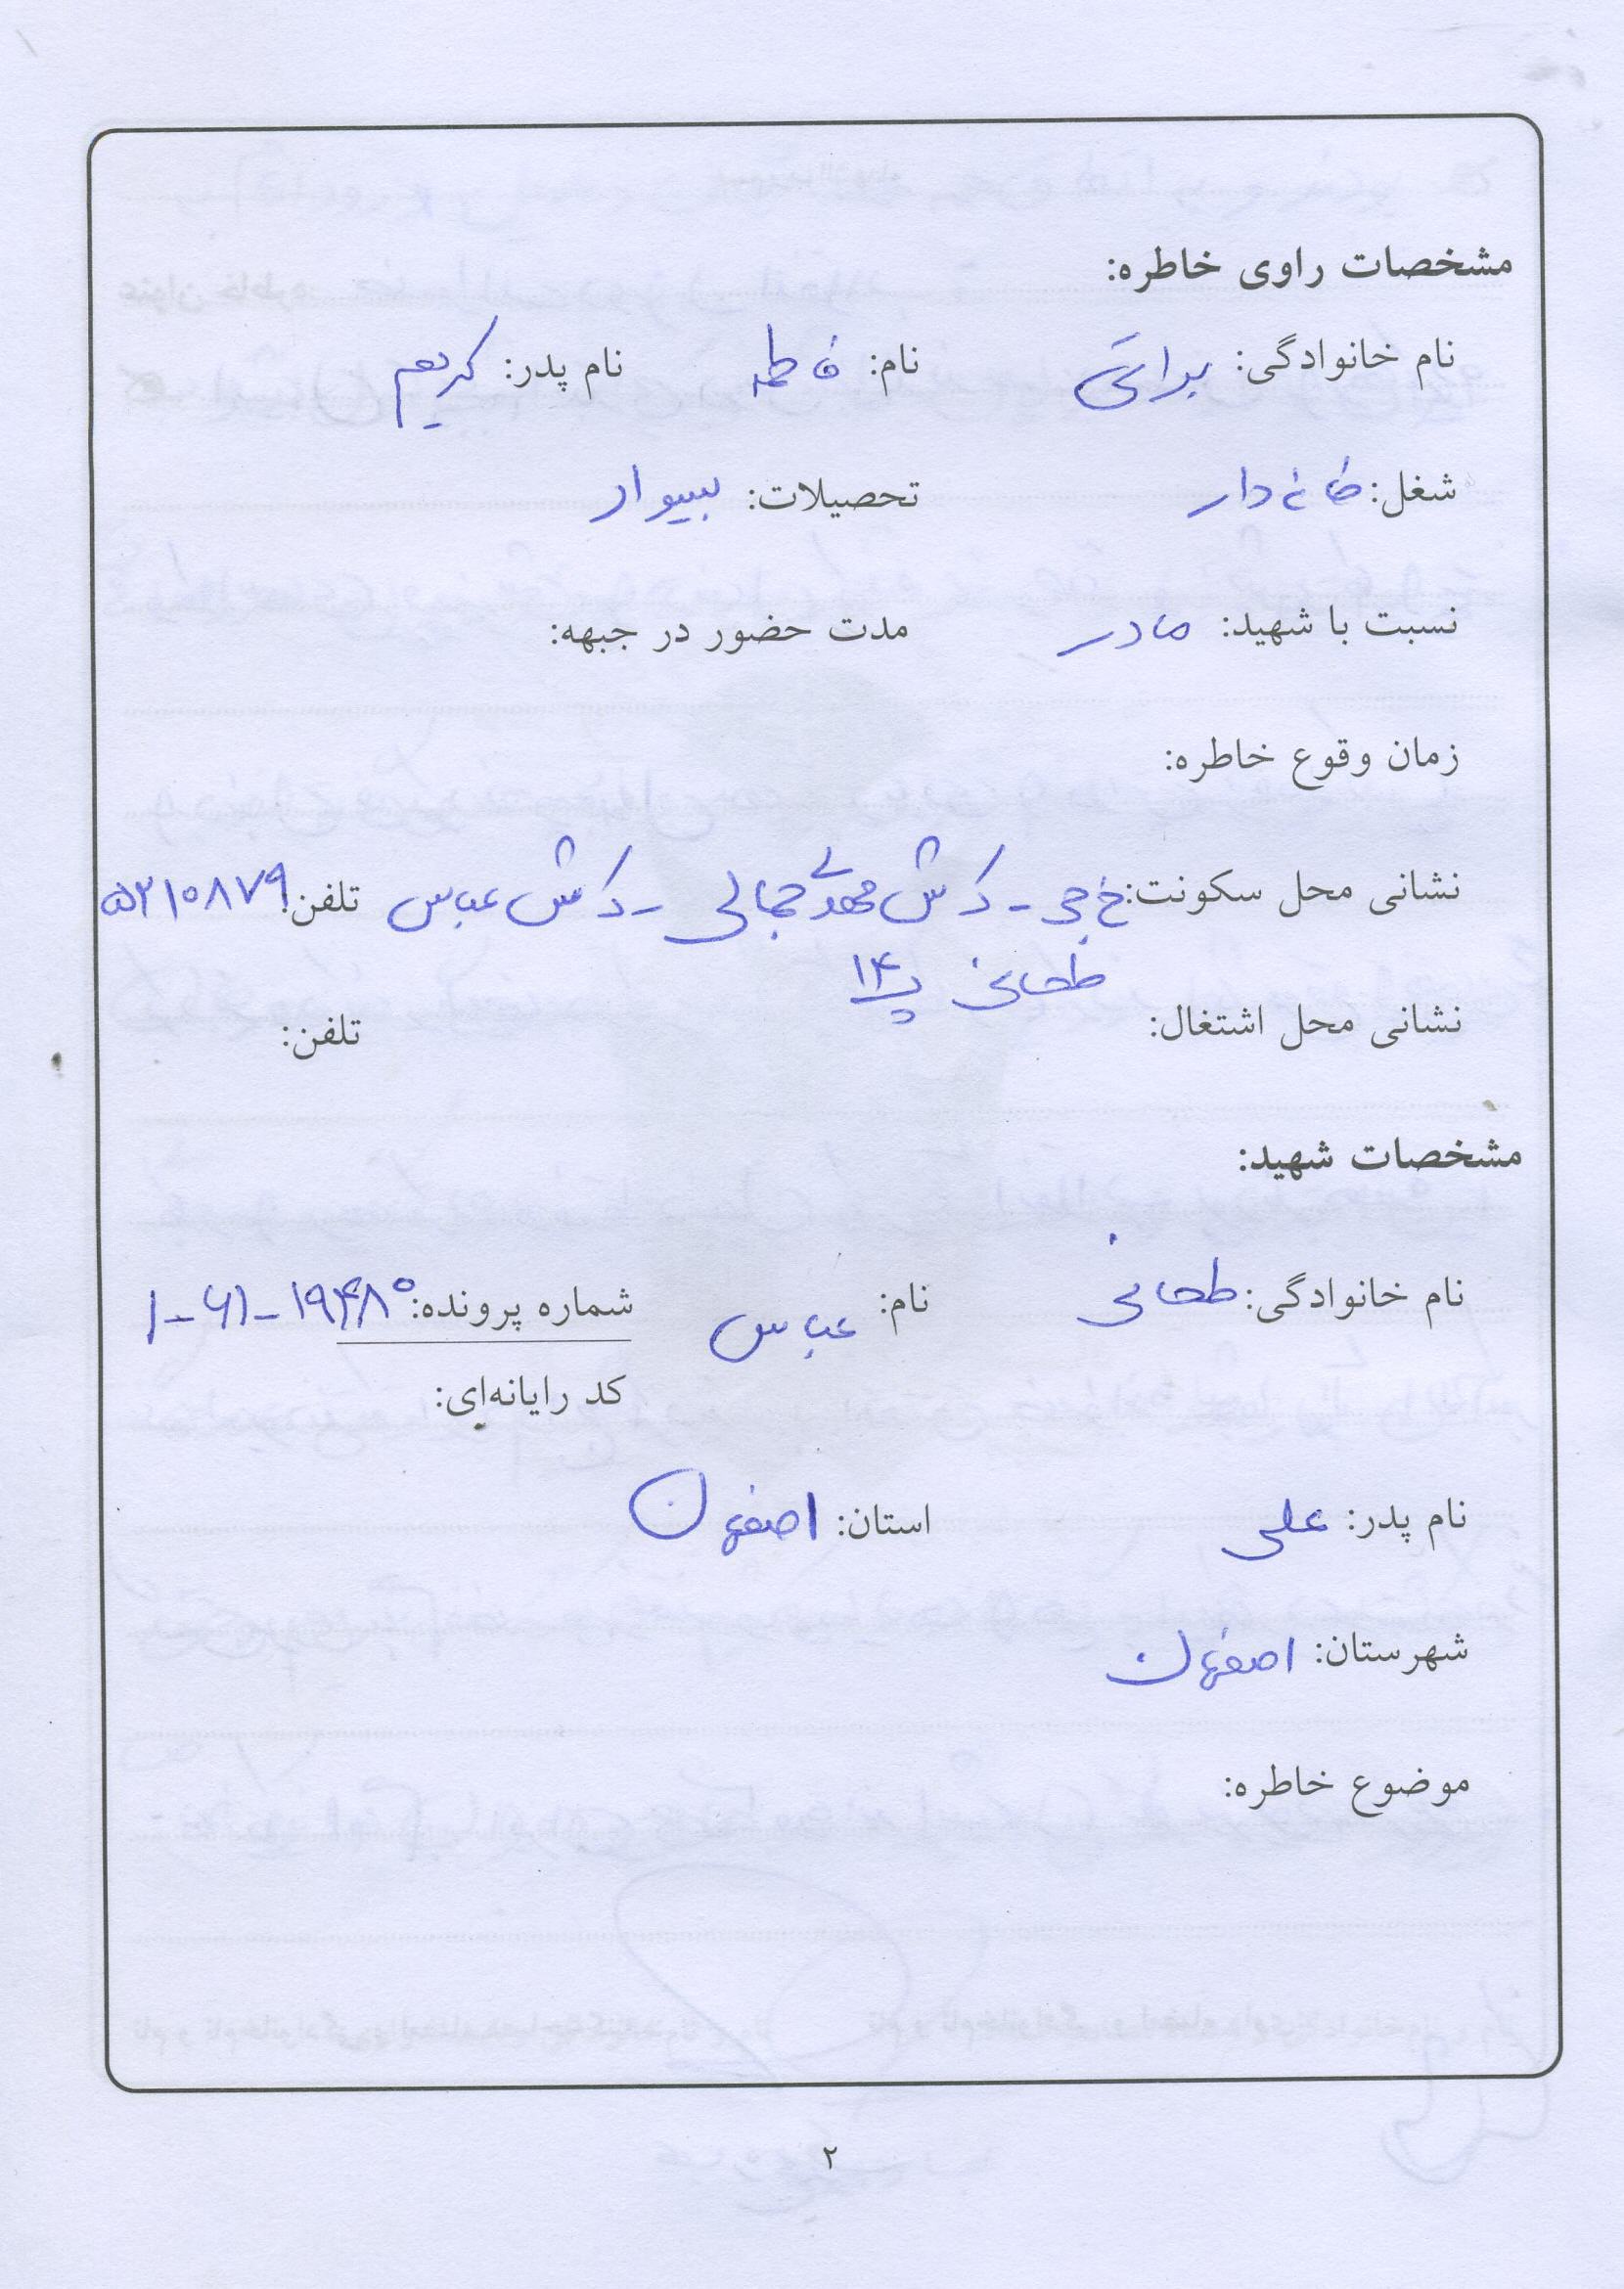 مشخصات راوی خاطره:
نام خانوادگی: براتی نام: فاطمه نام پدر: کریم
شغل: خانه دار تحصیلات: بیسواد
نسبت با شهید: مادر مدت حضور در جبهه:
زمان وقوع خاطره:
نشانی محل سکونت: خ جی - ک ش مهدی جمالی - ک ش عباس تلفن: ۵۲۱۰۸۷۹
طحانی پ ۱۴
نشانی محل اشتغال: تلفن:
مشخصات شهید:
نام خانوادگی: طحانی نام: عباس شماره پرونده: ۱۹۴۸۰-۶۱-۱
کد رایانه‌ای:
نام پدر: علی استان: اصفهان
شهرستان: اصفهان
موضوع خاطره:
۲